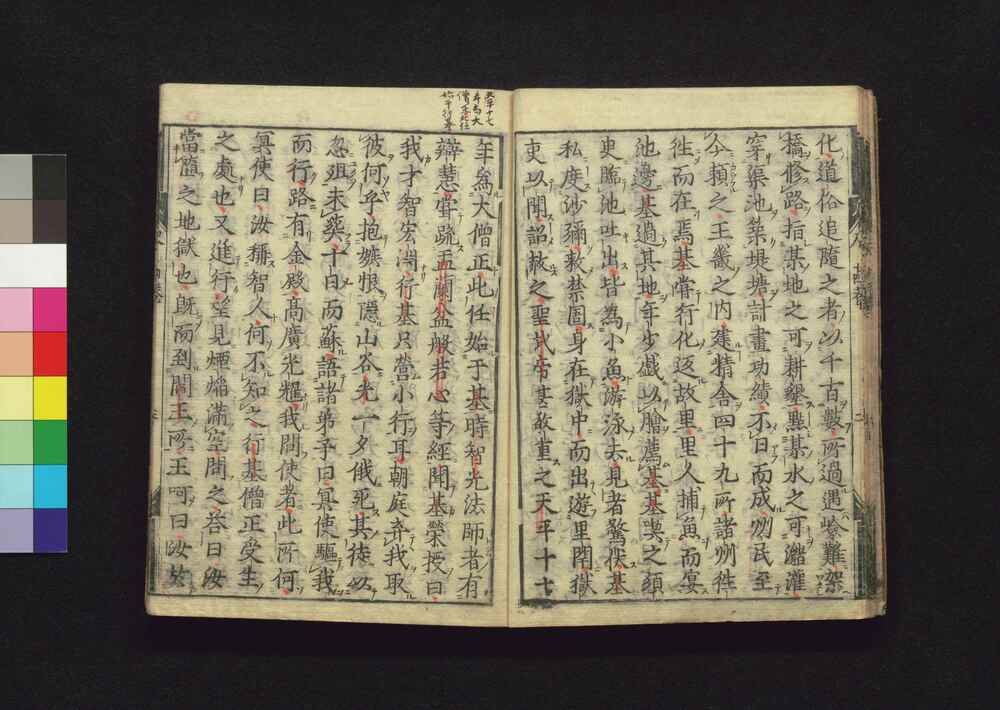 化道俗追隨之者以千百數所過遇嶮難架
橋修路指某地之可耕墾點某水之可瀦灌
穿渠池築堤塘計畫功績不日而成州民至
今賴之王畿之内建精舍四十九所諸州徃
徃而在焉基嘗行化返故里里人捕魚而宴
池邊基過其地年少戲以膾薦基基喫之須
臾臨池吐出皆為小魚游泳去見者驚伏基
私度沙彌敕禁圄身在獄中而出遊里閈獄
吏以聞詔赦之聖武帝甚敬重之天平十七
年為大僧正此任始于基時智光法師者有
辯慧聲疏盂蘭盆般若心等經聞基榮授曰
我才智宏淵行基只營小行耳朝庭弃我取
彼何乎抱嫉恨隱山谷光一夕俄死其徒以
忽殂未葬十日而蘇語諸弟子曰冥使驅我
而行路有金殿高廣光耀我問使者此所何
冥使曰汝稱智人何不知之行基僧正受生
之處也又進行望見煙焔滿空問之荅曰汝
當墮之地獄也既而到閻王所王呵曰汝於
天平十七
年為大